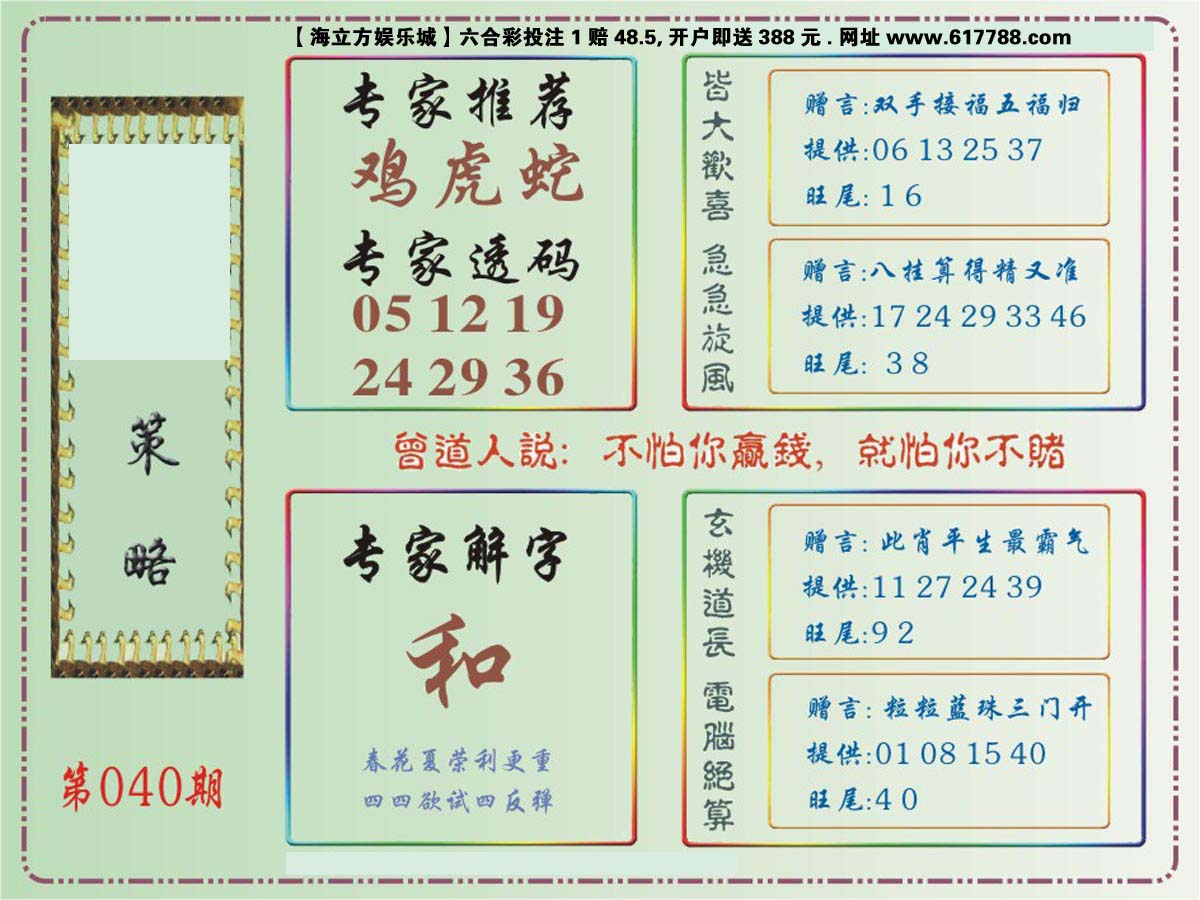 【海立方娱乐城】六合彩投注1赔48.5,开户即送388元.网址 www.617788.com
策
略
第040期
专家推荐
鸡虎蛇
专家透码
05 12 19
24 29 36
皆大歡喜
赠言:双手接福五福归
提供:06 13 25 37
旺尾: 1 6
急急旋風
赠言:八挂算得精又准
提供:17 24 29 33 46
旺尾: 3 8
曾道人説: 不怕你贏錢, 就怕你不賭
专家解字
和
春花夏荣利更重
四四欲试四反弹
玄機道長
赠言: 此肖平生最霸气
提供:11 27 24 39
旺尾:9 2
電腦絕算
赠言: 粒粒蓝珠三门开
提供:01 08 15 40
旺尾:4 0